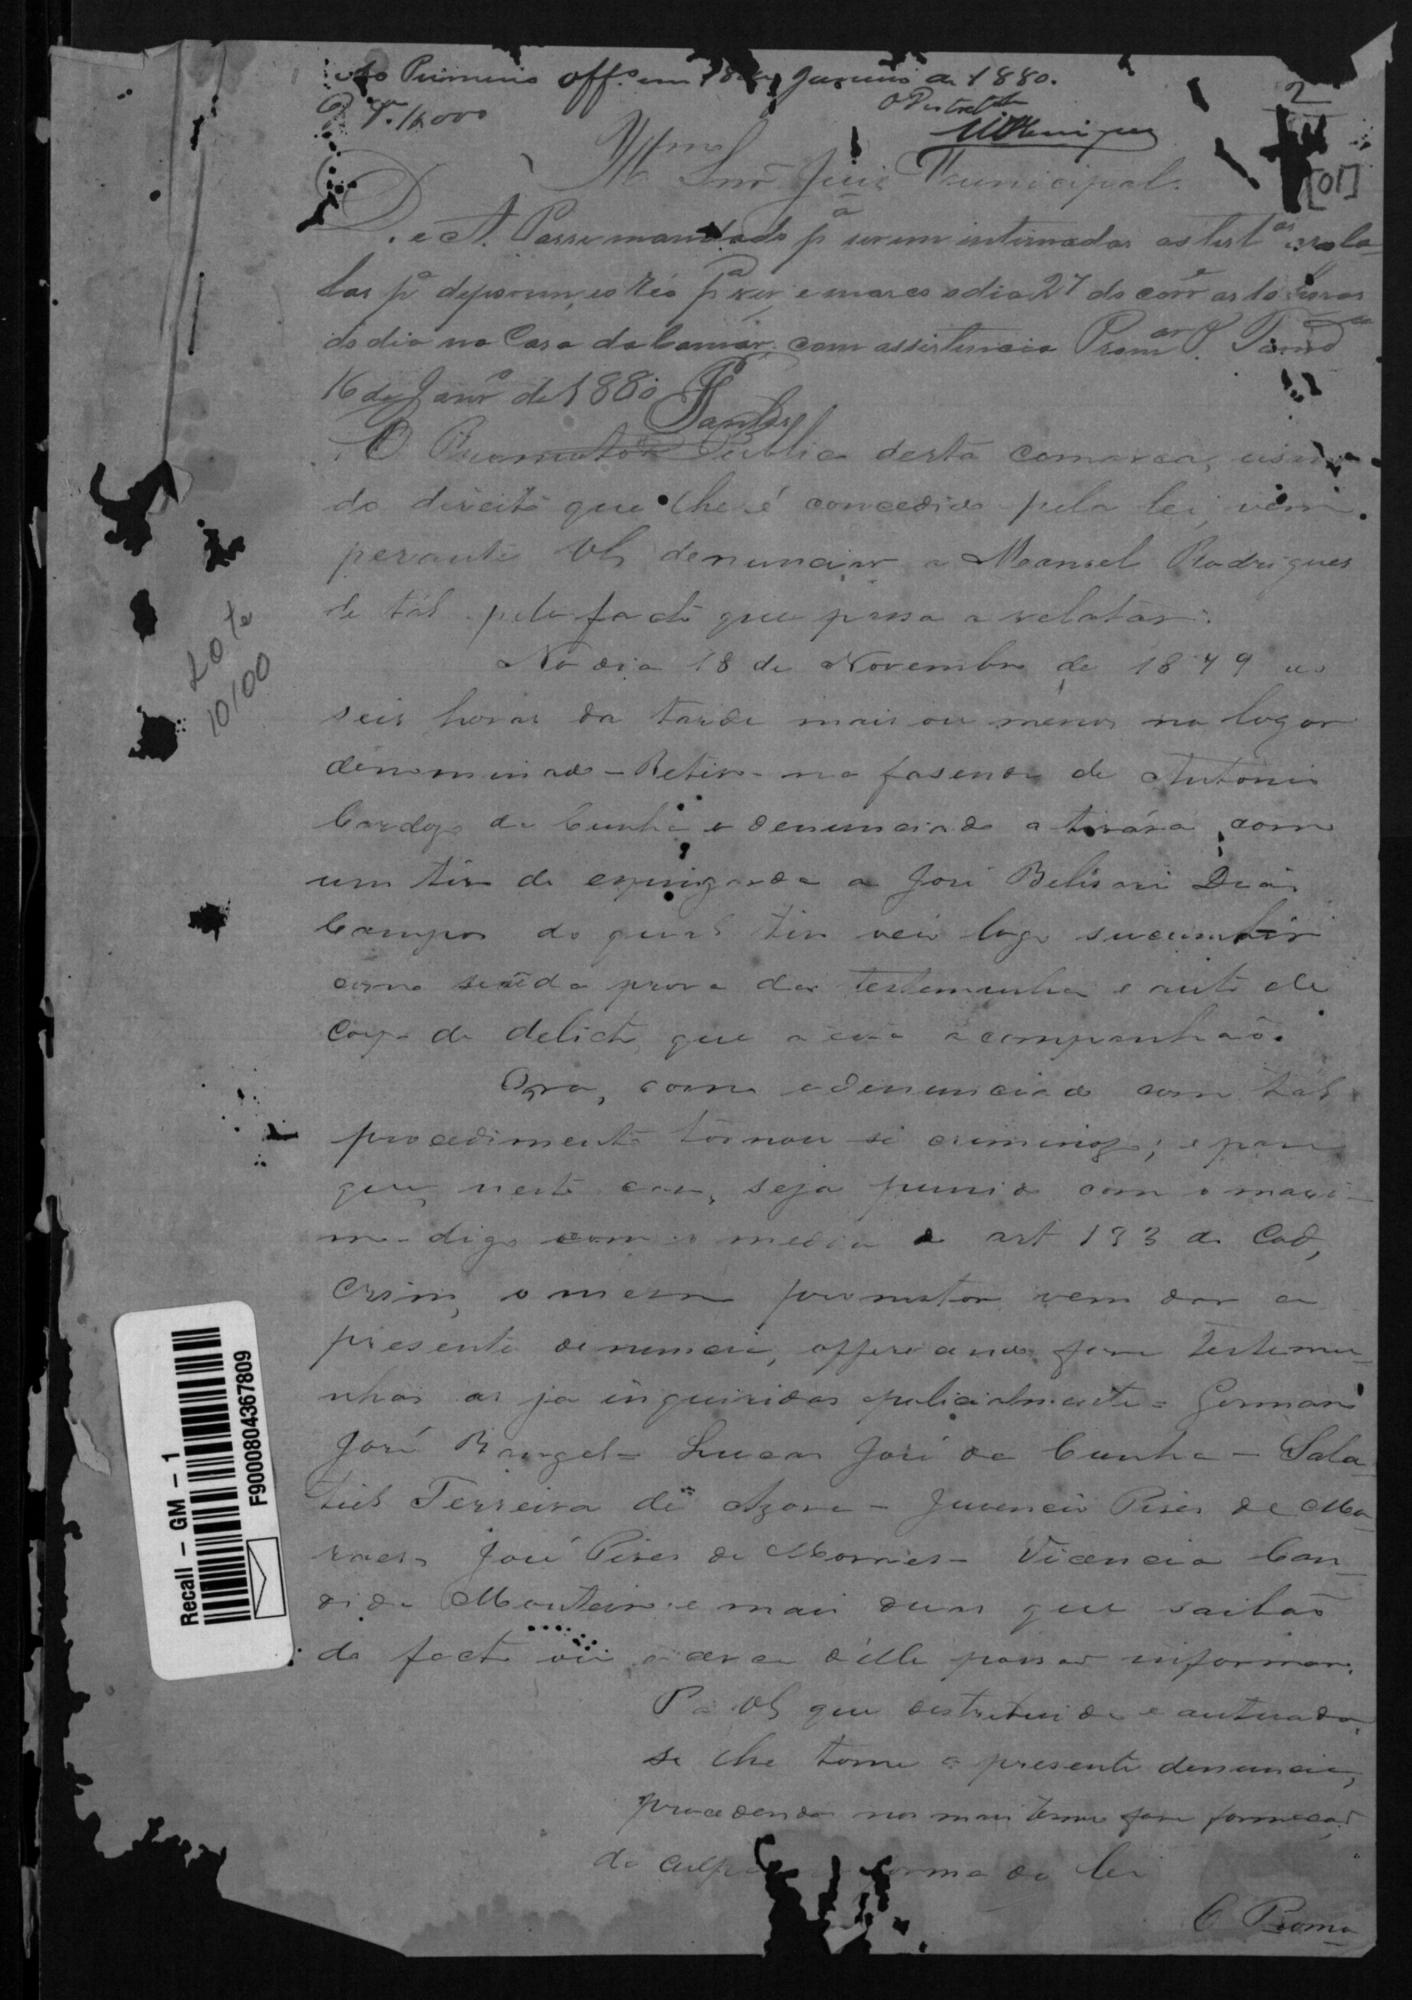 Ao Primeiro Off.º em 18 de Janeiro de 1880.
2
[01]
Illmo Snr Juiz Municipal.
D. e A. Passe mandado pª serem intimadas as testªs arrola-
das pª deporem, eo Réo pª ver, e marco o dia 27 do corre as 10 horas
do dia na Casa da Camara, com assistencia Promor P.
16 de Janrº de 1880
O Promotor Publico desta comarca, usando
do direito que lhe é concedido pela lei, vem
perante VS denunciar a Manoel Rodrigues
de tal pelo facto que passa a relatar:
No dia 18 de Novembro de 1879 as
seis horas da tarde mais ou menos no logar
denominado - Retiro - na fasenda de Antonio
Cardoso da Cunha o denunciado atirára com
um tiro de espingarda a José Belisari Dias
Campos do qual tiro veio logo sucumbir
como será da prova das testemunhas e auto de
corpo de delicto que a esta acompanhão.
Ora, como o denunciado com tal
procedimento tornou-se criminoso; e para
que, neste caso, seja punido com o maxi-
mo digo com o medio do art 193 do Cod,
Crim, o mesmo promotor vem dar a
presente denuncia, offerecendo para testemu-
nhas as ja inquiridas policialmente = Germano
José Rangel = Lucas José da Cunha - Sala-
tiel Ferreira de - Juvencio Pires de Mo-
raes - José Pires de Moraes - Vicencia Can-
dida Monteiro e mais duas que saibão
do facto ou acerca d'elle possão informar.
P. a VS que destribuida e autuada,
se lhe tome a presente denuncia,
procedendo nos mais termos para formação
da culpa forma da lei
O Promo-
Lote
10/00
Recall - GM - 1
F9000804367809